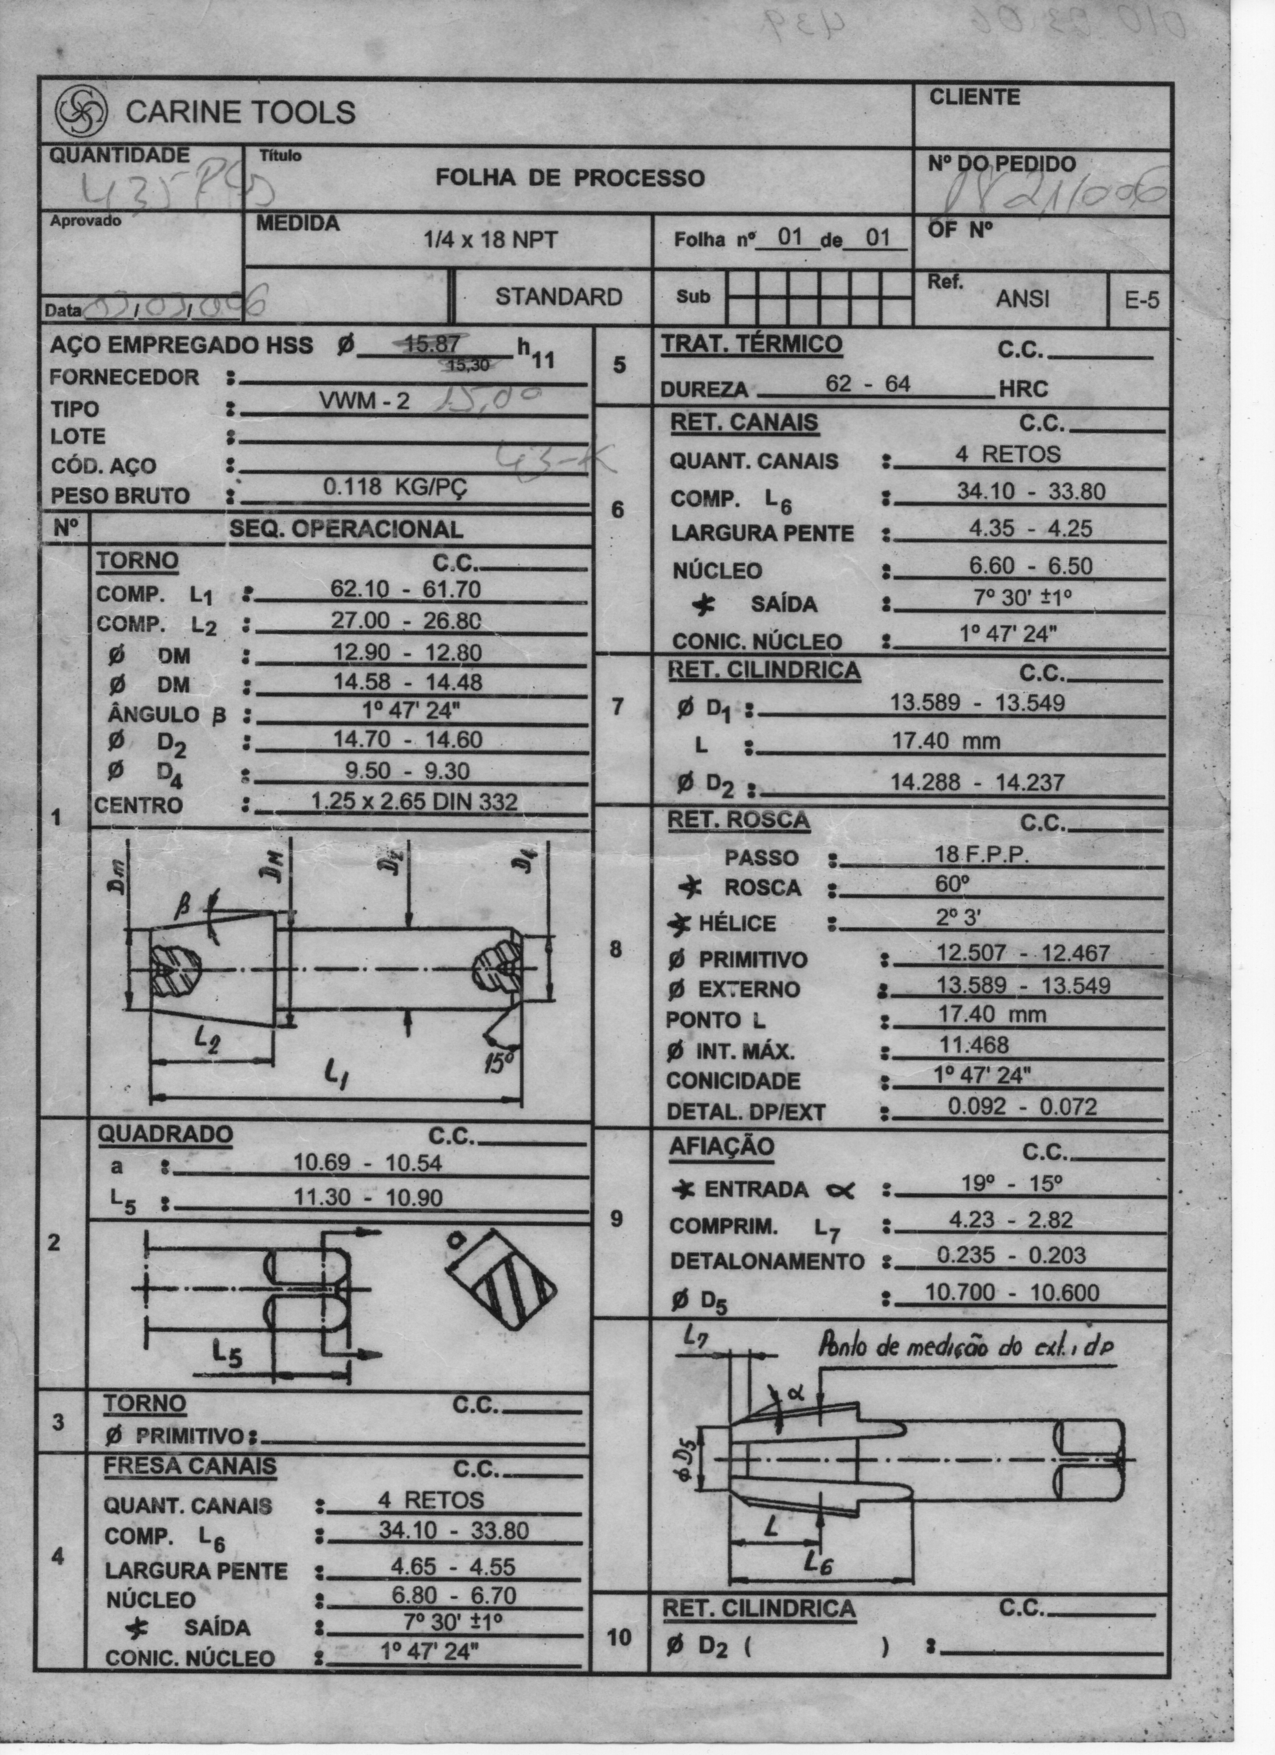 CARINE TOOLS
CLIENTE
QUANTIDADE
435 PÇS
Título
FOLHA DE PROCESSO
Nº DO PEDIDO
Aprovado
MEDIDA
1/4 x 18 NPT
Folha nº 01 de 01
OF Nº
STANDARD
Sub
Ref.
ANSI
E-5
Data
AÇO EMPREGADO HSS Ø 15.87 h11
15,30
FORNECEDOR :
TIPO : VWM - 2 15,00
LOTE :
CÓD. AÇO : 43-K
PESO BRUTO : 0.118 KG/PÇ
Nº SEQ. OPERACIONAL
1
TORNO C.C.
COMP. L1 : 62.10 - 61.70
COMP. L2 : 27.00 - 26.80
Ø DM : 12.90 - 12.80
Ø DM : 14.58 - 14.48
ÂNGULO β : 1º 47' 24"
Ø D2 : 14.70 - 14.60
Ø D4 : 9.50 - 9.30
CENTRO : 1.25 x 2.65 DIN 332
Dm
β
DM
D2
D4
L2
L1
15º
2
QUADRADO C.C.
a : 10.69 - 10.54
L5 : 11.30 - 10.90
a
L5
3
TORNO C.C.
Ø PRIMITIVO :
4
FRESA CANAIS C.C.
QUANT. CANAIS : 4 RETOS
COMP. L6 : 34.10 - 33.80
LARGURA PENTE : 4.65 - 4.55
NÚCLEO : 6.80 - 6.70
SAÍDA : 7º 30' ±1º
CONIC. NÚCLEO : 1º 47' 24"
5
TRAT. TÉRMICO C.C.
DUREZA 62 - 64 HRC
6
RET. CANAIS C.C.
QUANT. CANAIS : 4 RETOS
COMP. L6 : 34.10 - 33.80
LARGURA PENTE : 4.35 - 4.25
NÚCLEO : 6.60 - 6.50
SAÍDA : 7º 30' ±1º
CONIC. NÚCLEO : 1º 47' 24"
7
RET. CILINDRICA C.C.
Ø D1 : 13.589 - 13.549
L : 17.40 mm
Ø D2 : 14.288 - 14.237
8
RET. ROSCA C.C.
PASSO : 18 F.P.P.
ROSCA : 60º
HÉLICE : 2º 3'
Ø PRIMITIVO : 12.507 - 12.467
Ø EXTERNO : 13.589 - 13.549
PONTO L : 17.40 mm
Ø INT. MÁX. : 11.468
CONICIDADE : 1º 47' 24"
DETAL. DP/EXT : 0.092 - 0.072
9
AFIAÇÃO C.C.
ENTRADA α : 19º - 15º
COMPRIM. L7 : 4.23 - 2.82
DETALONAMENTO : 0.235 - 0.203
Ø D5 : 10.700 - 10.600
L7
Ponto de medição do ext. i dP
α
Ø D5
L
L6
10
RET. CILINDRICA C.C.
Ø D2 ( ) :